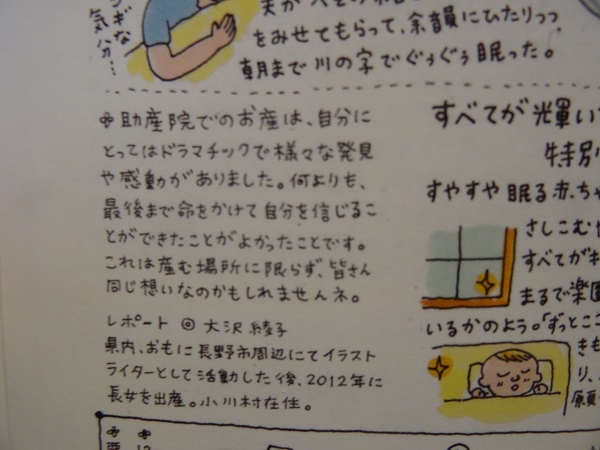 ギな
気分…
をみせてもらって、余韻にひたりつつ
朝まで川の字でぐぅぐぅ眠った。
助産院でのお産は、自分に
とってはドラマチックで様々な発見
や感動がありました。何よりも、
最後まで命をかけて自分を信じるこ
とができたことがよかったことです。
これは産む場所に限らず、皆さん
同じ想いなのかもしれませんネ。
レポート◎大沢綾子
県内、おもに長野市周辺にてイラスト
ライターとして活動した後、2012年に
長女を出産。小川村在住。
すべてが輝い
特別
すやすや眠る赤ちゃ
さしこむ
すべてがキ
まるで楽園
いるかのよう。「ずっとこ
きも
り、
願